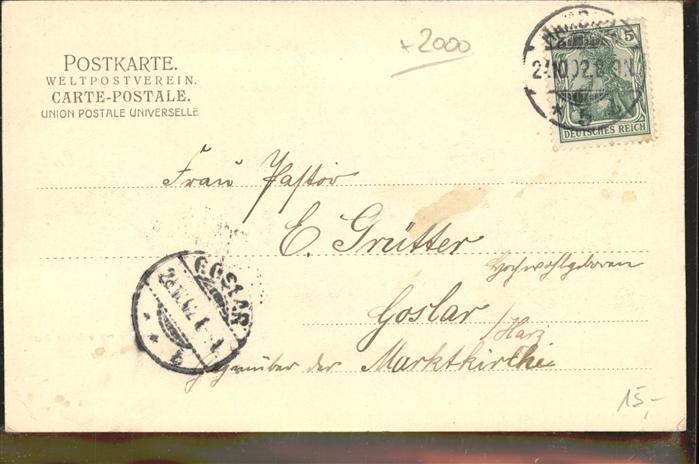 POSTKARTE.
WELTPOSTVEREIN.
CARTE-POSTALE.
UNION POSTALE UNIVERSELLE
+2000
5
DEUTSCHES REICH
* 5 *
Frau Pastor
E. Grütter
Hochwohlgeboren
Goslar
/Harz
gegenüber der Marktkirche
GOSLAR
15,-